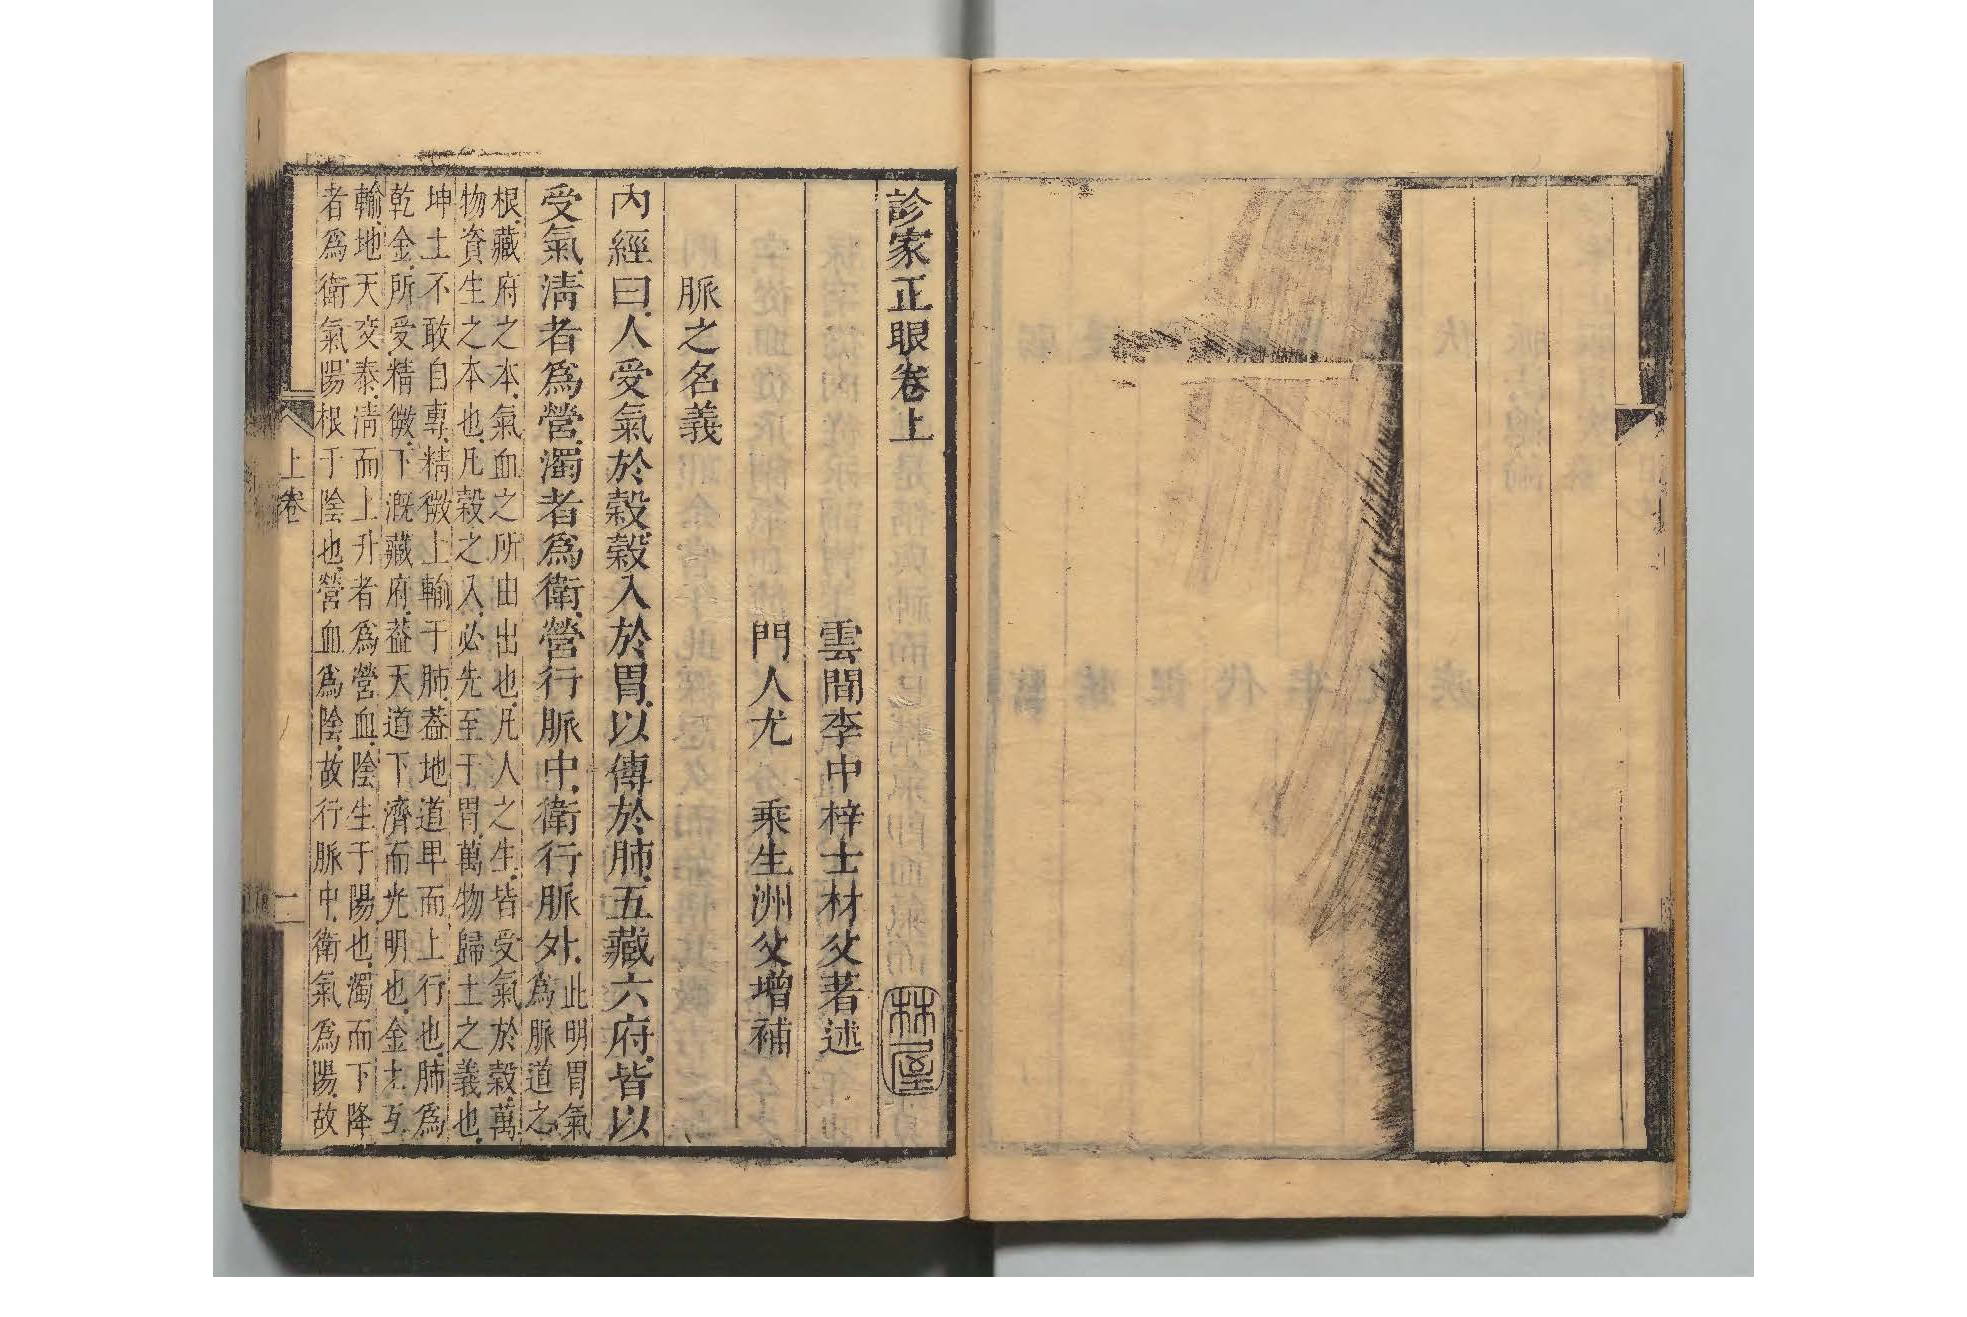 診家正眼卷上
林屋
雲間李中梓士材父著述
門人尤乘生洲父增補
脈之名義
內經曰人受氣於穀穀入於胃以傳於肺五藏六府皆以
受氣清者爲營濁者爲衛營行脈中衛行脈外
此明胃氣
爲脈道之
根藏府之本氣血之所由出也凡人之生皆受氣於穀萬
物資生之本也凡穀之入必先至于胃萬物歸土之義也
坤土不敢自專精微上輸于肺葢地道卑而上行也肺爲
乾金所受精微下溉藏府葢天道下濟而光明也金土互
輸地天交泰清而上升者爲營血陰生于陽也濁而下降
者爲衛氣陽根于陰也營血爲陰故行脈中衛氣爲陽故
上卷
二